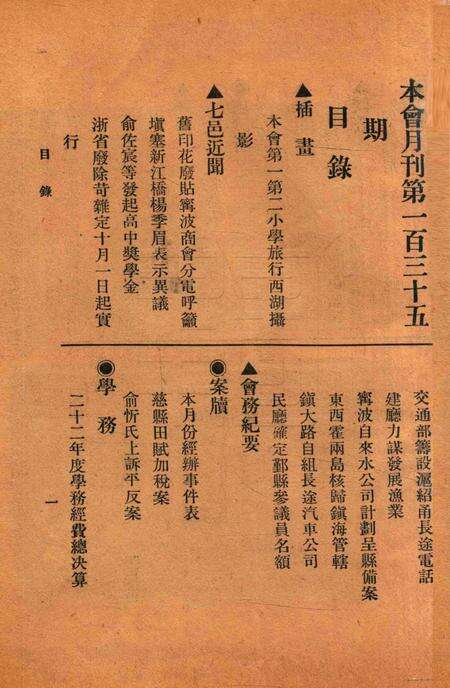 本會月刊第一百三十五
期
目錄
▲插畫
本會第一第二小學旅行西湖攝
影
▲七邑近聞
舊印花廢貼甯波商會分電呼籲
填塞新江橋楊季眉表示異議
俞佐宸等發起高中獎學金
浙省廢除苛雜定十月一日起實
行
目錄
交通部籌設滬紹甬長途電話
建廳力謀發展漁業
甯波自來水公司計劃呈縣備案
東西霍兩島核歸鎭海管轄
鎭大路自組長途汽車公司
民廳確定鄞縣參議員名額
▲會務紀要
●案牘
本月份經辦事件表
慈縣田賦加稅案
俞忻氏上訴平反案
●學務
二十二年度學務經費總決算
一